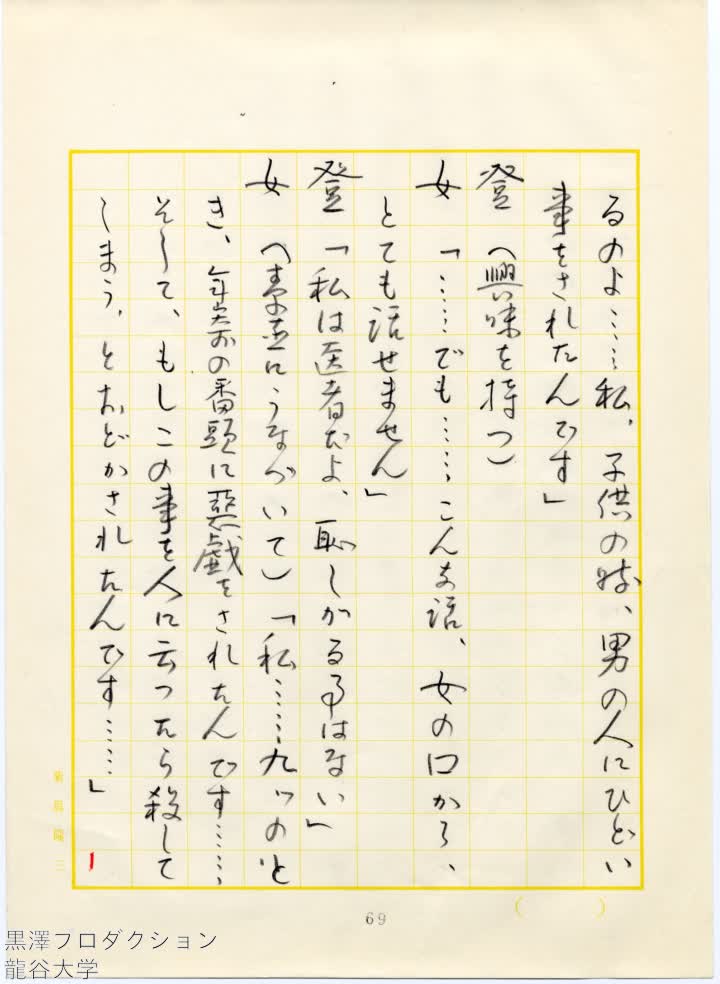 るのよ……私、子供の時、男の人にひどい
事をされたんです」
登（興味を持つ）
女「……でも……こんな話、女の口から、
とても話せません」
登「私は医者だよ、恥しがる事はない」
女（素直にうなづいて）「私……九ツのと
き、年寄の番頭に悪戯をされたんです……
そして、もしこの事を人に云つたら殺して
しまう、とおどかされたんです……」
1
菊島隆三
( )
69
黒澤プロダクション
龍谷大学